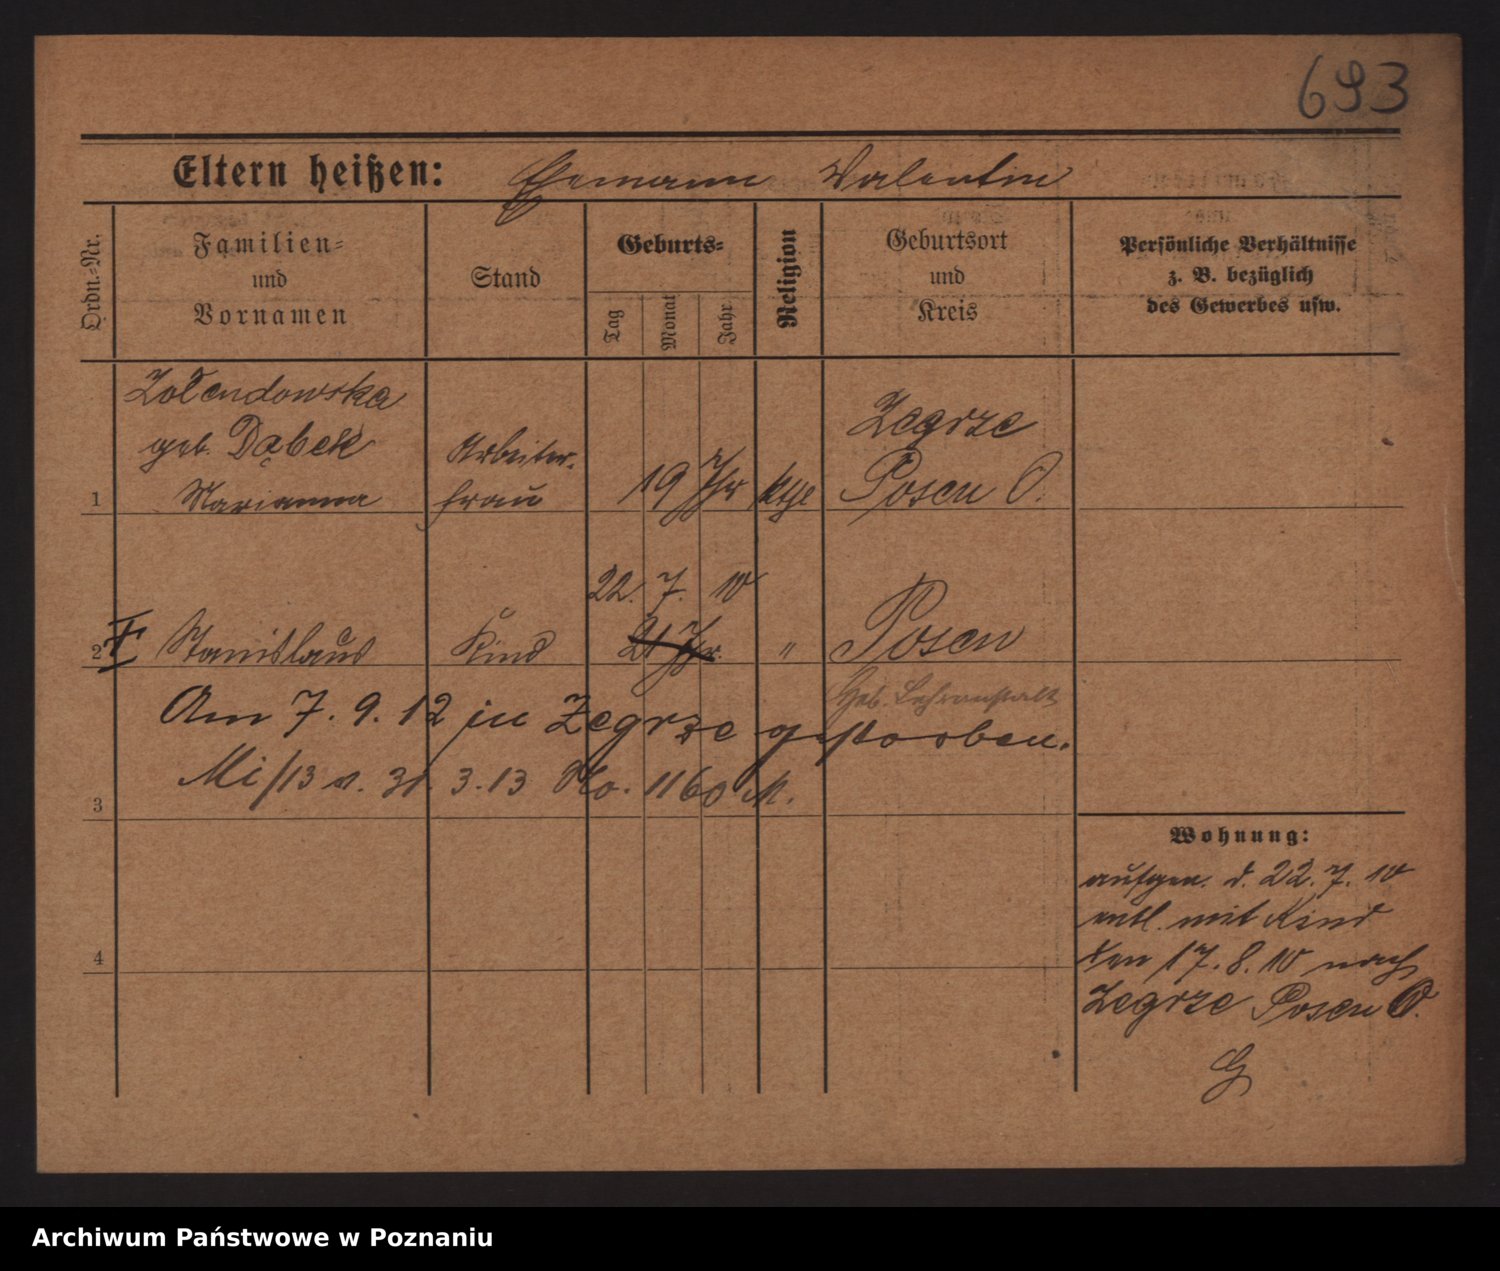 693
Eltern heißen: Ehemann Valentin
Ordn.-Nr.
Familien-
und
Vornamen
Stand
Geburts-
Tag
Monat
Jahr
Religion
Geburtsort
und
Kreis
Persönliche Verhältnisse
z. B. bezüglich
des Gewerbes usw.
Zołendowska
geb. Dąbek
Marianna
Arbeiter-
frau
19 Jhr
kth
Zegrze
Posen O.
1
22. 7. 10
2
Stanislaus
Kind
21 Jhr.
"
Posen
Geb. Lehranstalt
Am 7. 9. 12 in Zegrze gestorben.
Mi/13 v. 31. 3. 13 No. 1160 M.
3
Wohnung:
aufgen. d. 22. 7. 10
entl. mit Kind
den 17. 8. 10 nach
Zegrze Posen O.
4
Archiwum Państwowe w Poznaniu